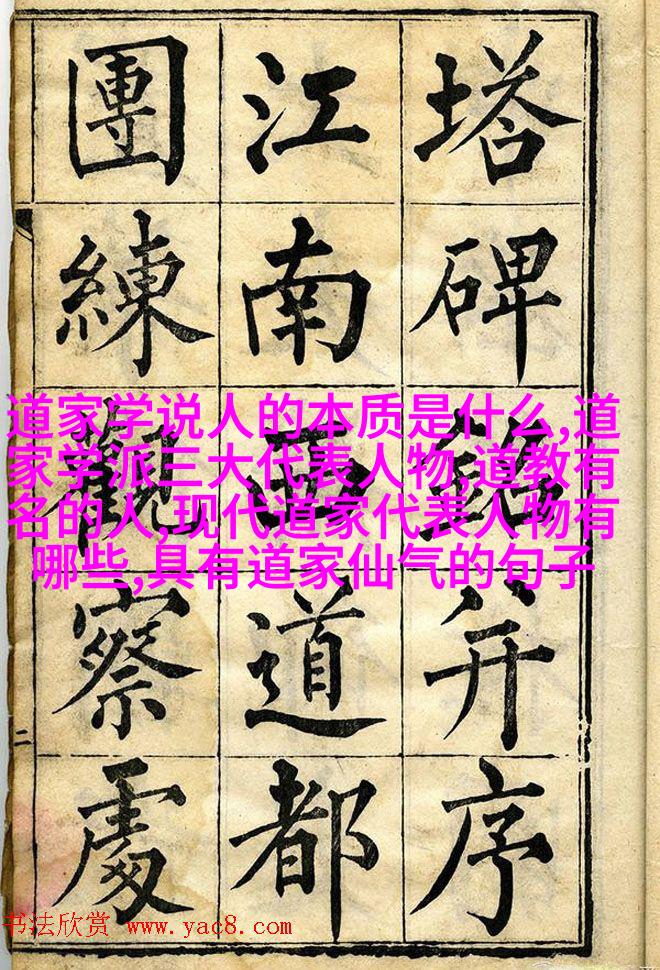 塔碑銘并序
江南西道都
團練觀察處
二
道家学说人的本质是什么,道
家学派三大代表人物,道教有
名的人,现代道家代表人物有
哪些,具有道家仙气的句子
书法欣赏 www.yac8.com